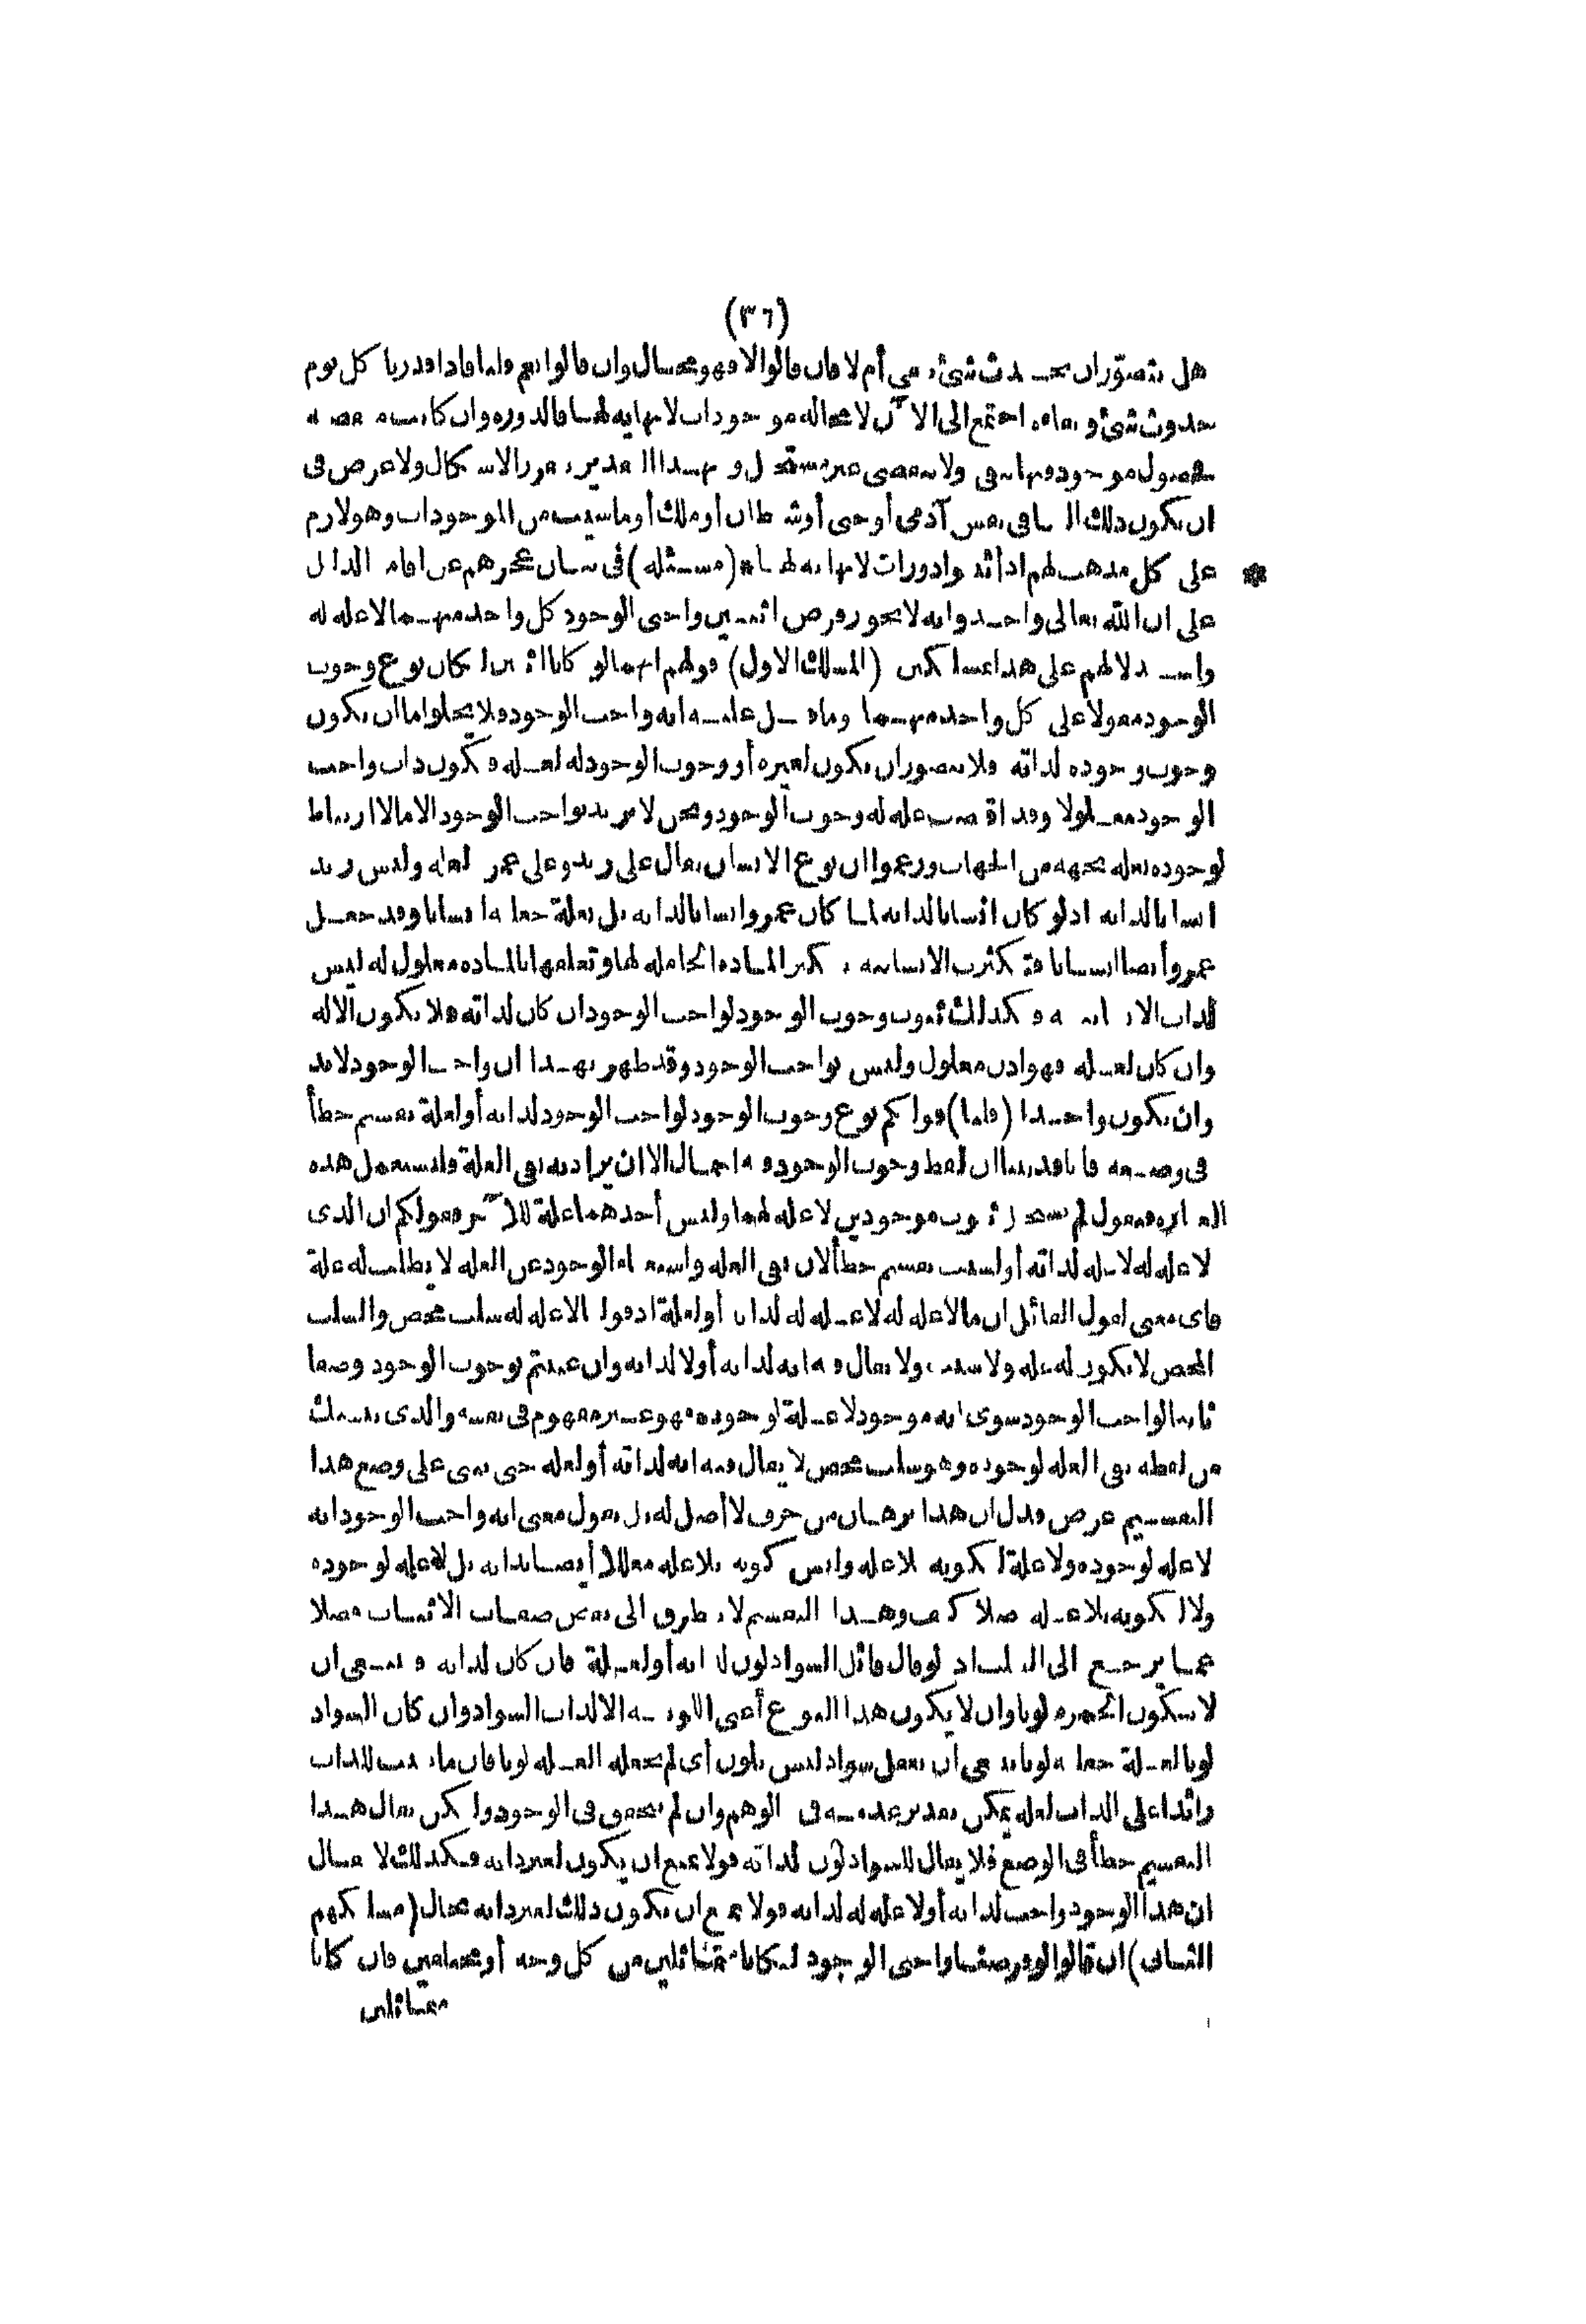 (٣٦)
هل يتصوّر ان يحدث شئ يبقى أم لا فان قالوا لا فهو محال وان قالوا نعم قلنا فاذا قدرنا كل يوم
حدوث شئ وبقاءه اجتمع الى الآن لا محالة موجودات لا نهاية لها فالدورة وان كانت منقضية
فحصول موجود فيها يبقى ولا ينقضى غير مستحيل وبهذا التقدير يتقرر الاشكال ولا غرض فى
ان يكون ذلك الباقى نفس آدمى أو جنى أو شيطان أو ملك أو ما شئت من الموجودات وهو لازم
على كل مذهب لهم اذ أثبتوا دورات لا نهاية لها * (مسئلة) فى بيان عجزهم عن اقامة الدليل *
على ان الله تعالى واحد وانه لا يجوز فرض اثنين واجبى الوجود كل واحد منهما لا علة له
واستدلالهم على هذا بمسلكين (المسلك الاول) قولهم انهما لو كانا اثنين لكان نوع وجوب
الوجود مقولا على كل واحد منهما وما قيل عليه انه واجب الوجود فلا يخلو اما ان يكون
وجوب وجوده لذاته فلا يتصور ان يكون لغيره أو وجوب الوجود له لعلة فيكون ذات واجب
الوجود معلولا وقد اقتضت علة له وجوب الوجود ونحن لا نريد بواجب الوجود الا ما لا ارتباط
لوجوده بعلة بجهة من الجهات وزعموا ان نوع الانسان يقال على زيد وعلى عمرو لعلة وليس زيد
انسانا لذاته اذ لو كان انسانا لذاته لما كان عمرو انسانا لذاته بل بعلة جعلته انسانا وقد جعل
عمرو أيضا انسانا فتكثرت الانسانية بتكثر المادة الحاملة لها وتعلقها بالمادة معلول له ليس
لذات الانسانية فكذلك ثبوت وجوب الوجود لواجب الوجود ان كان لذاته فلا يكون الا له
وان كان لعلة فهو اذن معلول وليس بواجب الوجود وقد ظهر بهذا ان واجب الوجود لا بد
وان يكون واحدا (قلنا) قولكم نوع وجوب الوجود لواجب الوجود لذاته أو لعلة تقسيم خطأ
فى وضعه فانا قد بينا ان لفظ وجوب الوجود فيه اجمال الا ان يراد به نفى العلة فلنستعمل هذه
العبارة فنقول لم يستحيل ثبوت موجودين لا علة لهما وليس أحدهما علة للآخر فقولكم ان الذى
لا علة له لا علة له لذاته أو لسبب تقسيم خطأ لان نفى العلة واستغناء الوجود عن العلة لا يطلب له علة
فاى معنى لقول القائل ان ما لا علة له لا علة له لذاته أو لعلة اذ قولنا لا علة له سلب محض والسلب
المحض لا يكون له علة ولا سبب ولا يقال فيه انه لذاته أو لا لذاته وان عنيتم بوجوب الوجود وصفا
ثابتا لواجب الوجود سوى انه موجود لا علة لوجوده فهو غير مفهوم فى نفسه والذى ينسبك
من لفظه نفى العلة لوجوده وهو سلب محض لا يقال فيه انه لذاته أو لعلة حتى يبنى على وضع هذا
التقسيم غرض فدل ان هذا برهان من خرف لا أصل له بل نقول معنى انه واجب الوجود انه
لا علة لوجوده ولا علة لكونه بلا علة وليس كونه بلا علة معللا أيضا بذاته بل لا علة لوجوده
ولا لكونه بلا علة أصلا كيف وهذا التقسيم لا يتطرق الى بعض صفات الاثبات فضلا
عما يرجع الى السلب اذ لو قال قائل السواد لون لذاته أو لعلة فان كان لذاته فينبغى ان
لا تكون الحمرة لونا وان لا يكون هذا النوع أعنى اللونية الا لذات السواد وان كان السواد
لونا لعلة جعلته لونا فينبغى ان يعقل سواد ليس بلون أى لم تجعله العلة لونا فان ما يثبت للذات
زائدا على الذات لعلة يمكن تقدير عدمه فى الوهم وان لم يتحقق فى الوجود ولكن يقال هذا
التقسيم خطأ فى الوضع فلا يقال للسواد لون لذاته قولا يمنع ان يكون لغير ذاته فكذلك لا يقال
ان هذا الوجود واجب لذاته أو لا علة له لذاته قولا يمنع ان يكون ذلك لغير ذاته بحال (مسلكهم
الثانى) ان قالوا لو فرضنا واجبى الوجود لكانا متماثلين من كل وجه أو مختلفين فان كانا
متماثلين